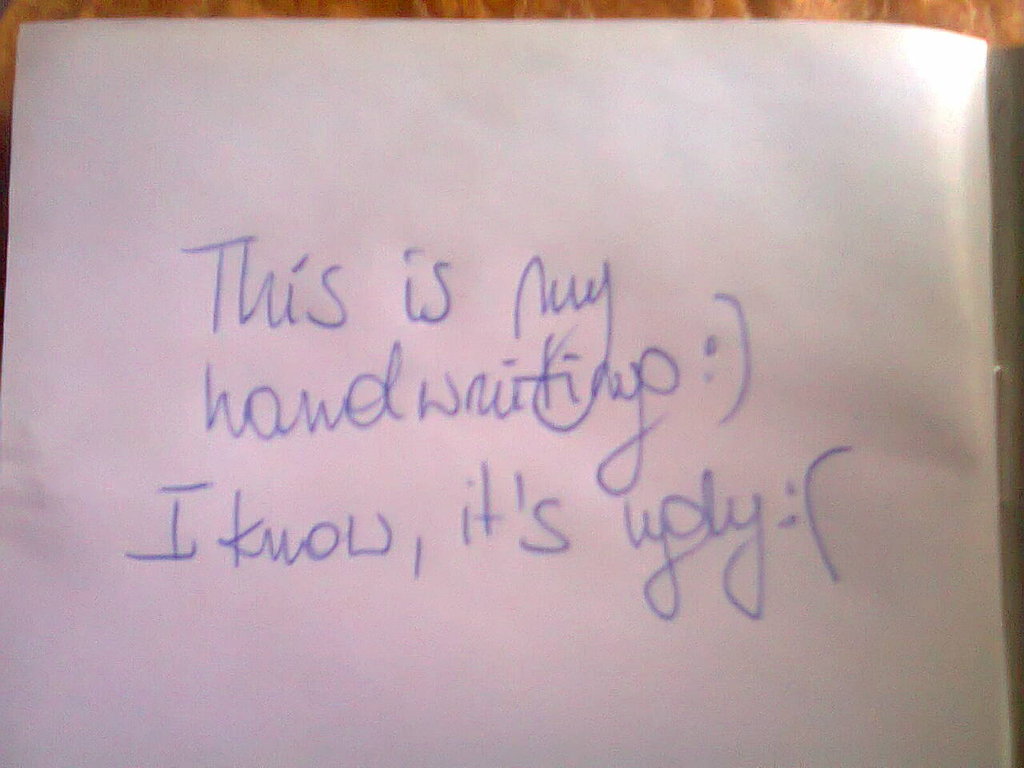 This is my
handwriting :)
I know, it's ugly :(